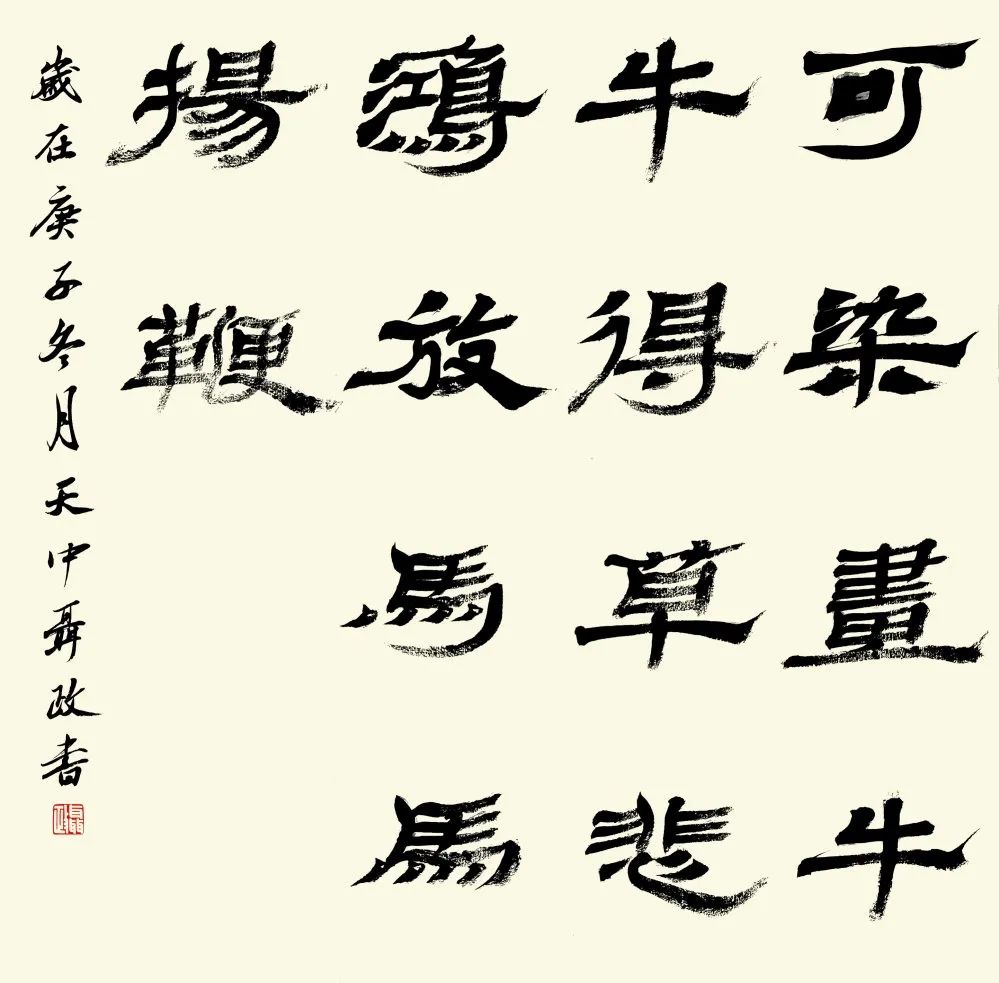 可染畫牛
牛得草悲
鴻放馬馬
揚鞭
歲在庚子冬月天中聶政書